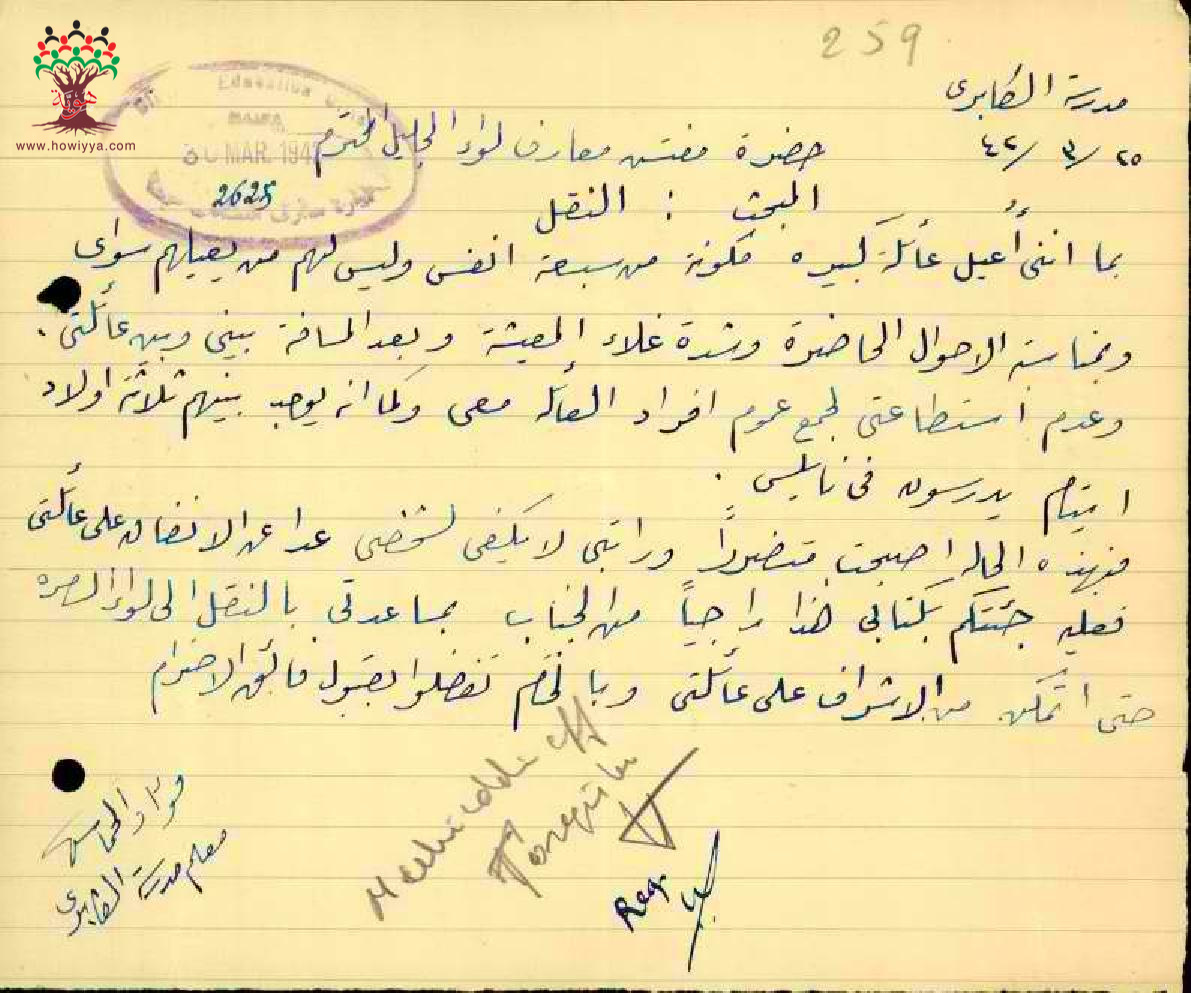 259
مدرسة الكابري
٢٥/ ٣/ ٤٢
حضرة مفتش معارف لواء الجليل المحترم
Education
HAIFA
30 MAR. 194
2625
www.howiyya.com
المبحث : النقل
بما انني أُعيل عائلة كبيره مكونة من سبعة انفس وليس لهم من يعيلهم سواى
وبمناسبة الاحوال الحاضرة وشدة غلاء المعيشة وبعد المسافة بيني وبين عائلتي.
وعدم استطاعتي لجمع عموم افراد العائله معي وكما انه يوجد بينهم ثلاثة اولاد
ايتام يدرسون في نابلس.
فبهذه الحاله اصبحت متضرراً وراتبي لا يكفي لشخصي عدا عن الانفاق على عائلتي
فعليه جئتكم بكتابي هذا راجياً من الجناب بمساعدتي بالنقل الى لواء
حتى اتمكن من الاشراف على عائلتي وبالختام تفضلوا بقبول فائق الاحترام
فؤاد
معلم مدرسة الكابري
Reg.